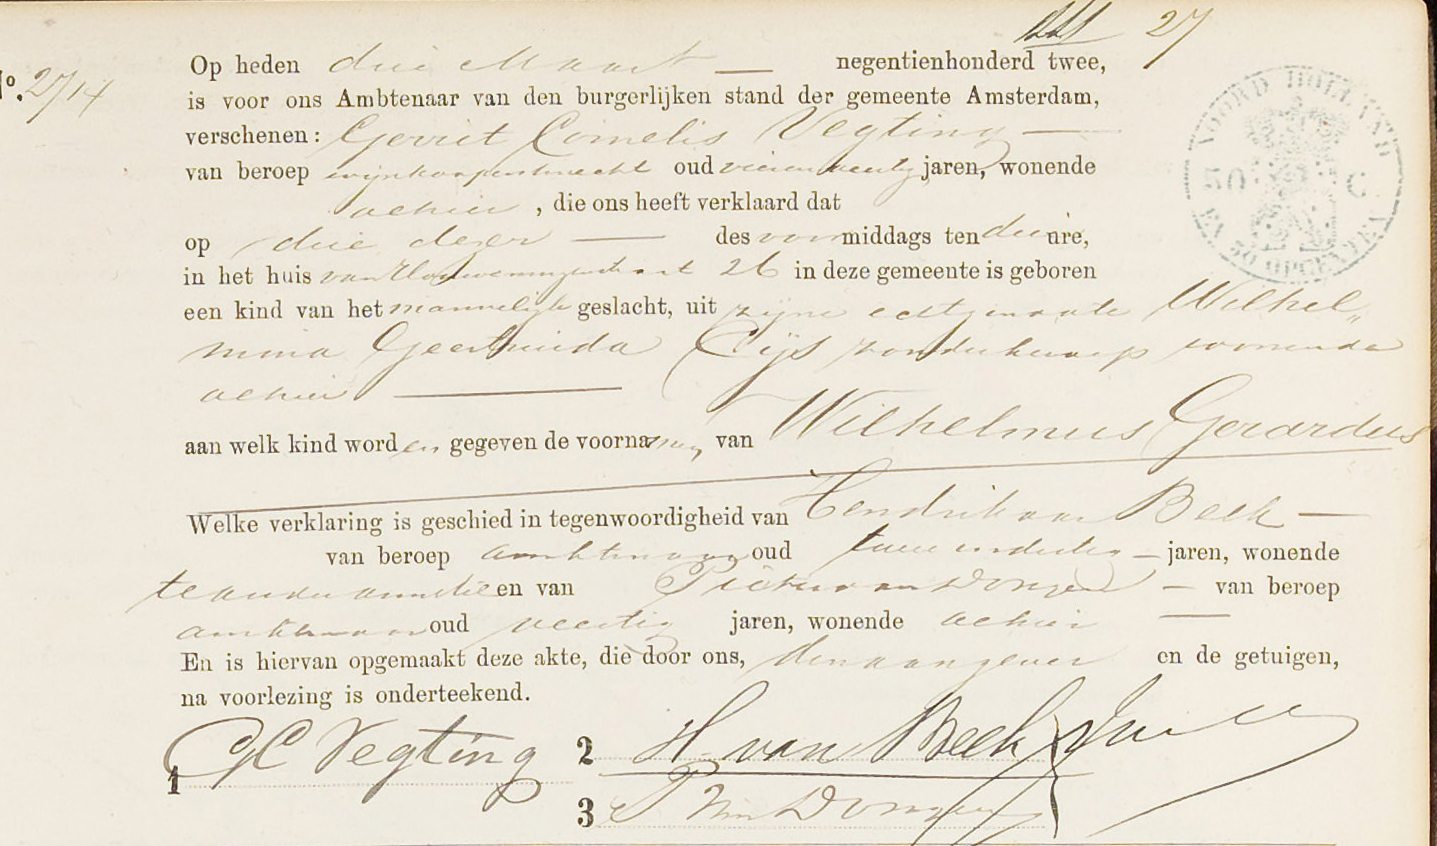 27
Op heden drie Maart negentienhonderd twee,
No. 2714
is voor ons Ambtenaar van den burgerlijken stand der gemeente Amsterdam,
verschenen: Gerrit Cornelis Vegting
van beroep wijnkoopersknecht oud vierentwintig jaren, wonende
alhier, die ons heeft verklaard dat
op drie dezer des voormiddags ten drie ure,
in het huis van Hogendorpstraat 26 in deze gemeente is geboren
een kind van het mannelijk geslacht, uit zijne echtgenoote Wilhel„
mina Geertruida Cijs zonder beroep wonende
alhier
aan welk kind worden gegeven de voornamen van Wilhelmus Gerardus
Welke verklaring is geschied in tegenwoordigheid van Hendrik van Beek
van beroep ambtenaar oud twee en dertig jaren, wonende
te ouder amstel en van Pieter van Dongen van beroep
ambtenaar oud veertig jaren, wonende alhier
En is hiervan opgemaakt deze akte, die door ons, den aangever en de getuigen,
na voorlezing is onderteekend.
1 GC Vegting 2 H van Beek
3 P van Dongen
NOORD HOLLAND
50 C
EN 50 OPCENTEN